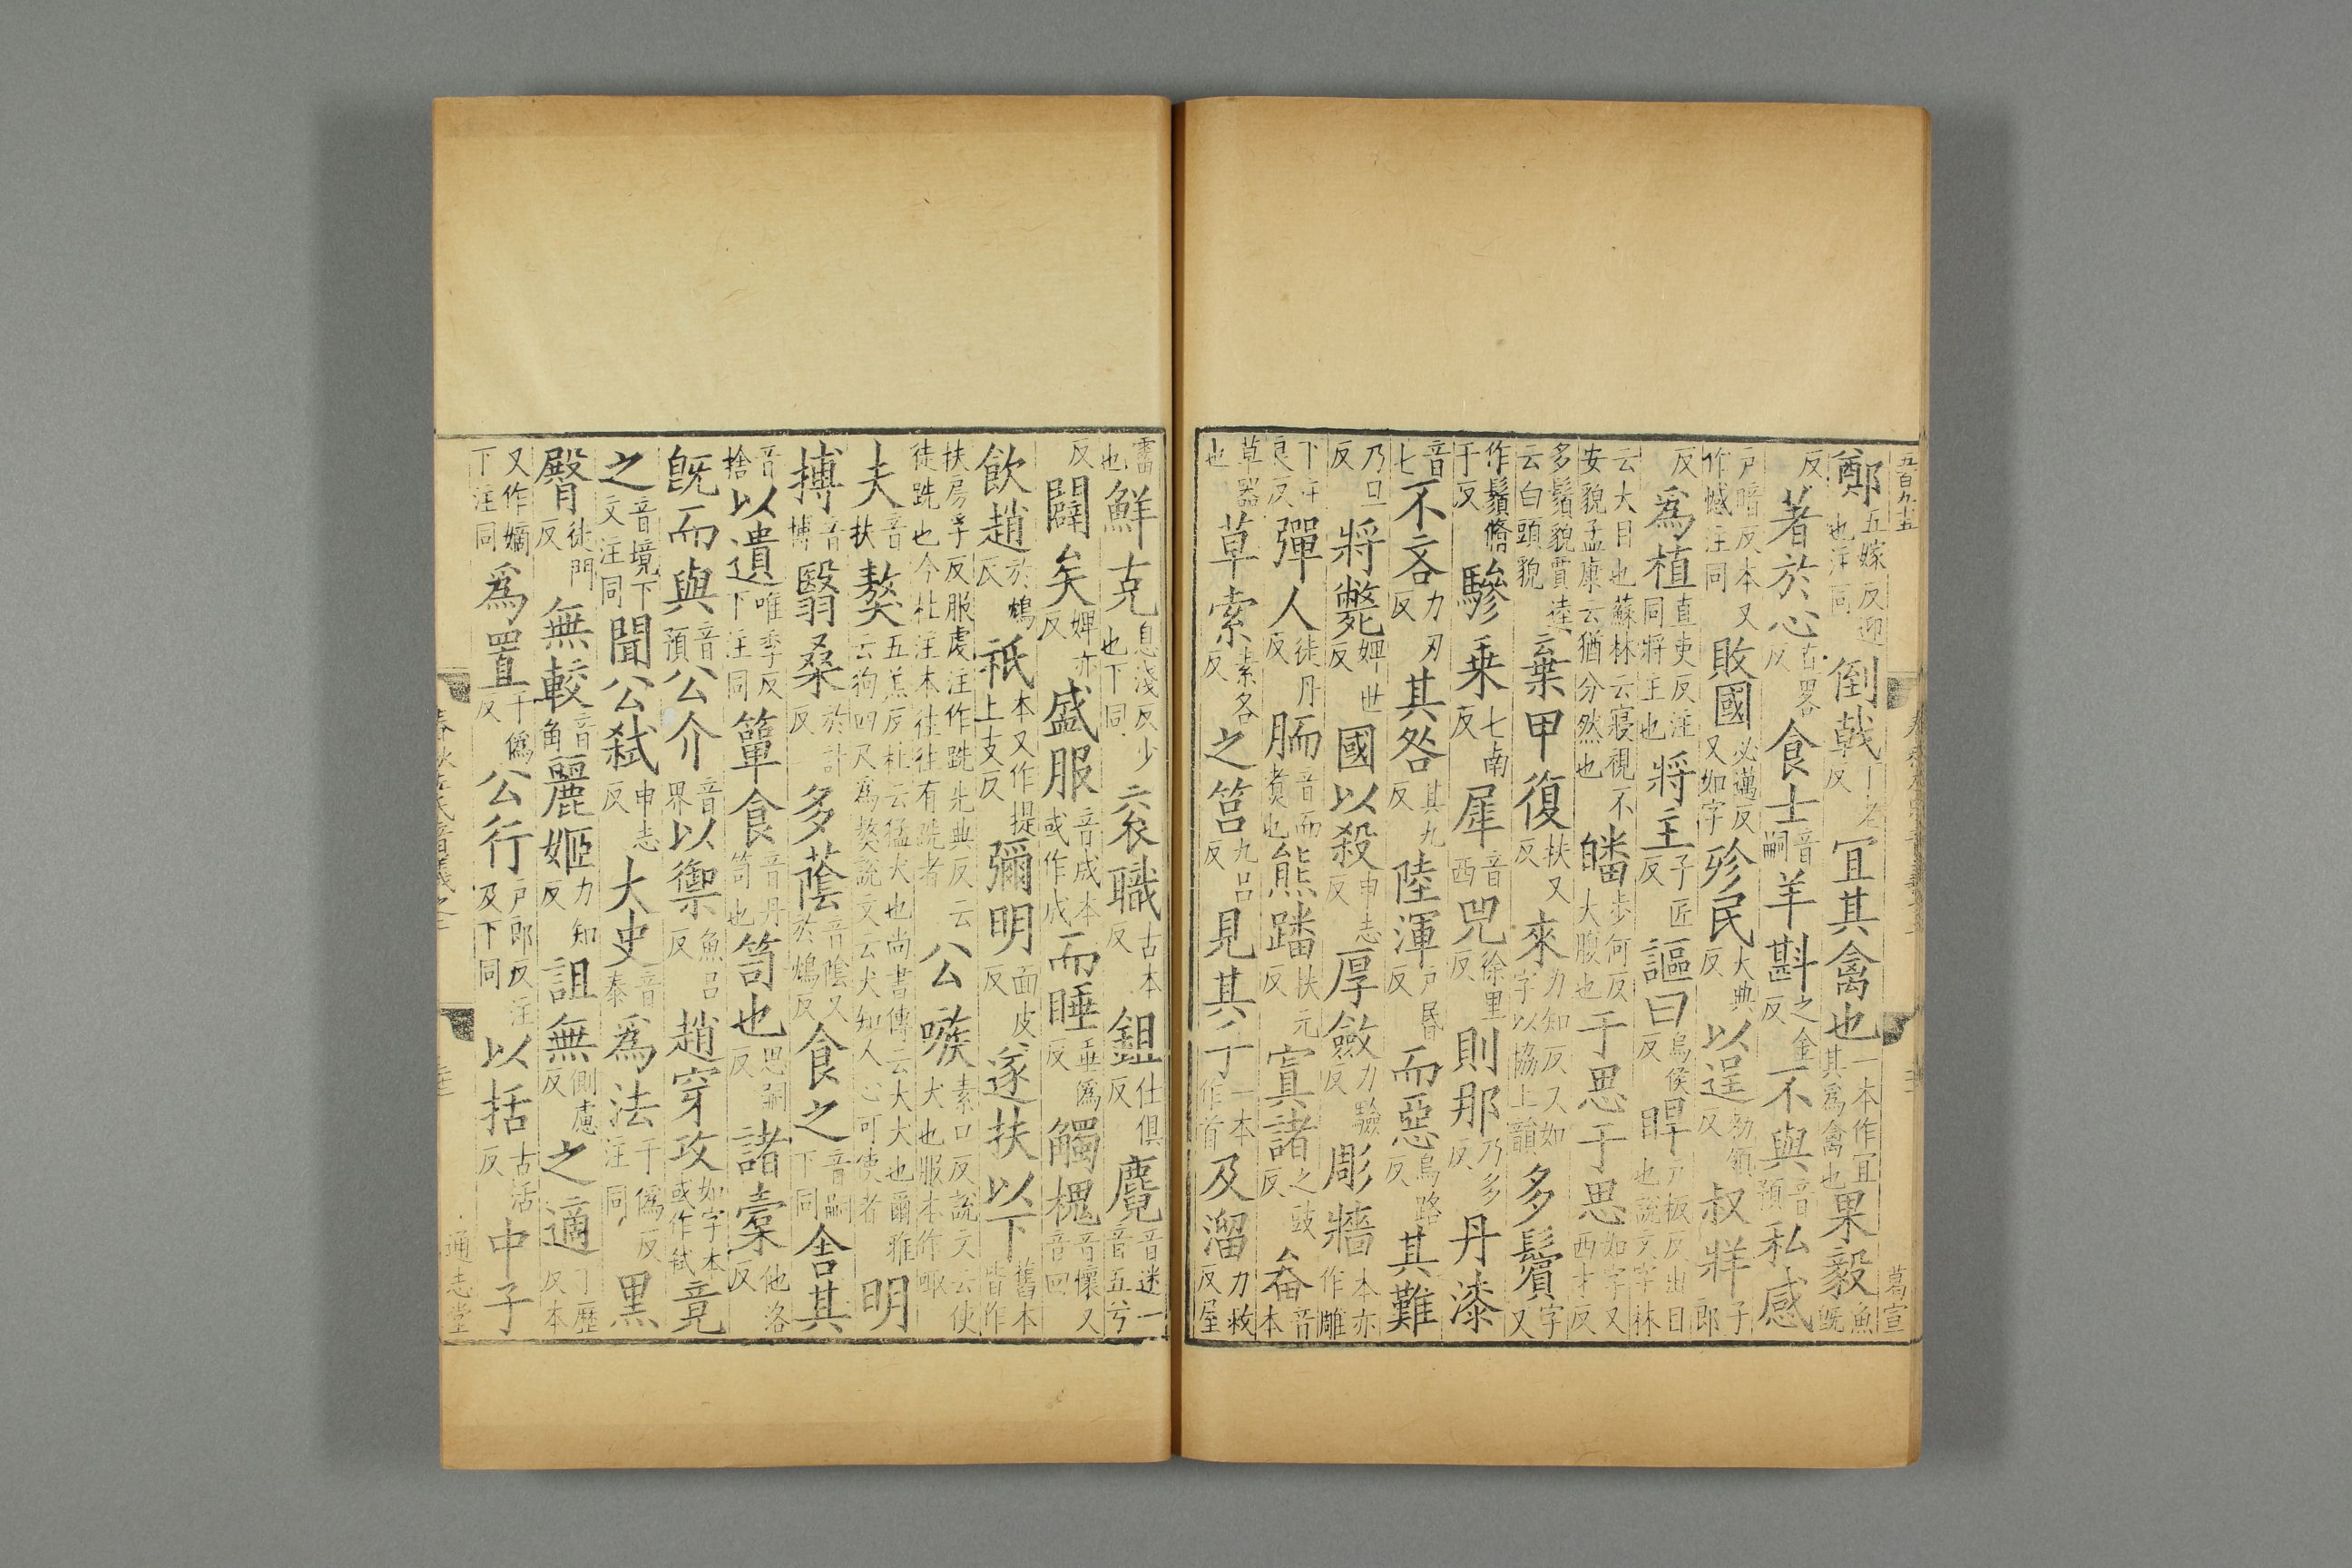 五百九五
鄭五嫁反迎也注同倒戟丁老反冝其禽也一本作冝其爲禽也果毅魚旣
反著於心直畧反食士音嗣羊斟之金反不與音預私感
戸暗反本又作憾注同敗國必邁反又如字殄民大典反以逞勑領反叔牂子郎
反爲植直吏反注同將主也將主子匠反謳曰烏侯反睅戸板反出目也說文字林
云大目也蘇林云寢視不安貌孟康云猶分然也皤步何反大腹也于思于思如字又西才反
多鬚貌賈逵云白頭貌棄甲復扶又反來力知反又如字以協上韻多鬢字又
作鬚脩于反驂乗七南反犀音西兕徐里反則那乃多反丹漆
音七不吝力刃反其咎其九反陸渾戸昬反而惡烏路反其難
乃旦反將斃婢世反國以殺申志反厚斂力驗反彫牆本亦作雕
下注同彈人徒丹反胹音而煑也熊蹯扶元反寘諸之豉反畚音本
草器也草索素各反之筥九呂反見其手一本作首及溜力救反屋
霤也鮮克息淺反少也下同衮職古本反鉏仕俱反麑音迷一音五兮
反闢矣婢亦反盛服音成本或作成而睡垂僞反觸槐音懷又音回
飲趙於鴆反祇本又作提上支反彌明面皮反遂扶以下舊本皆作
扶房孚反服虔注作跣先典反云徒跣也今杜注本往往有跣者公嗾素口反說文云使犬也服本作㖩
夫音扶獒五羔反杜云猛犬也尚書傳云大犬也爾雅云狗四尺爲獒說文云犬知人心可使者明
搏音博翳桑於計反多蔭音陰又於鴆反食之音嗣下同舍其
音捨以遺唯季反下注同簞食音丹笥也笥也思嗣反諸橐他洛反
旣而與音預公介音界以禦魚呂反趙穿攻如字本或作弑竟
之音境下文注同聞公弑申志反大史音泰爲法于僞反注同黑
臀徒門反無較音角麗姬力知反詛無側慮反之適丁歷反本
又作嫡下注同爲置于僞反公行戸郎反注及下同以括古活反中子
葛宣
通志堂